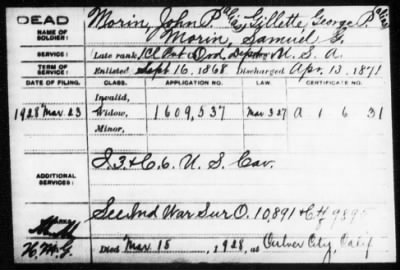 DEAD
NAME OF SOLDIER:
Morin, John P. Gillette, George P. alias
Morin, Samuel G.
SERVICE:
Late rank, 1 Cl Pvt Ord. Dept., U. S. A.
TERM OF SERVICE:
Enlisted Sept 16, 1868 Discharged Apr. 13, 1871
DATE OF FILING. CLASS. APPLICATION NO. CERTIFICATE NO.
Invalid,
1928 Mar 23 Widow, 1609,537 Mar 327 A 1 6 31
Minor,
ADDITIONAL SERVICES:
I. 3 & C. 6. U. S. Cav.
See Ind War Sur O. 10,891 & Ctf 9895
REMARKS:
H. M. G. Died Mar. 15, 1928, at Culver City, Calif